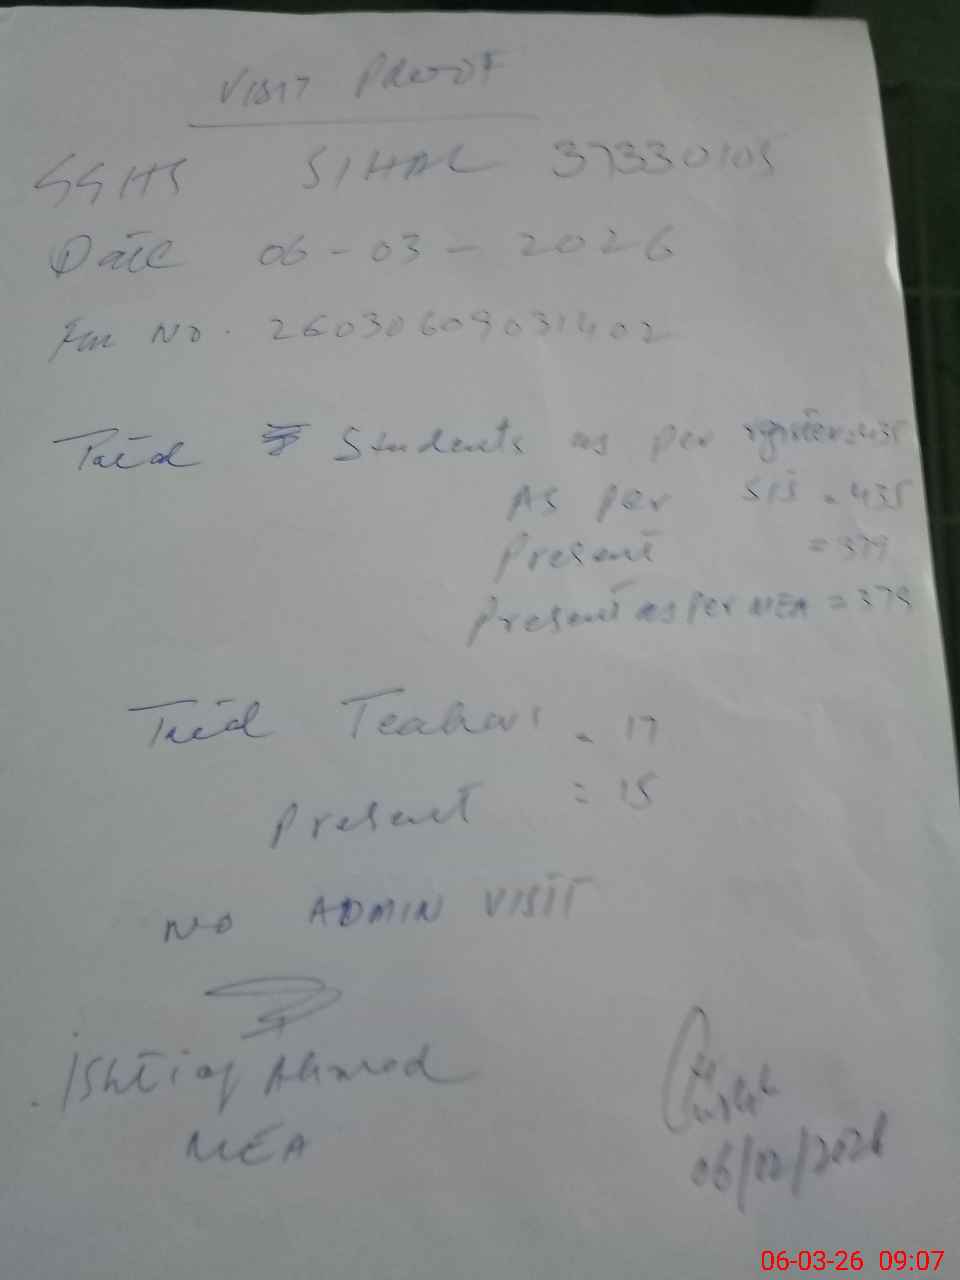 VISIT PROOF
GGHS SIHAL 37330105
Date 06-03-2026
Fm No. 26030609031402
Total Students as per register = 435
As per SIS = 435
Present = 379
Present as per MEA = 379
Total Teachers = 17
Present = 15
NO ADMIN VISIT
Ishtiaq Ahmed
MEA
06/03/2026
06-03-26 09:07